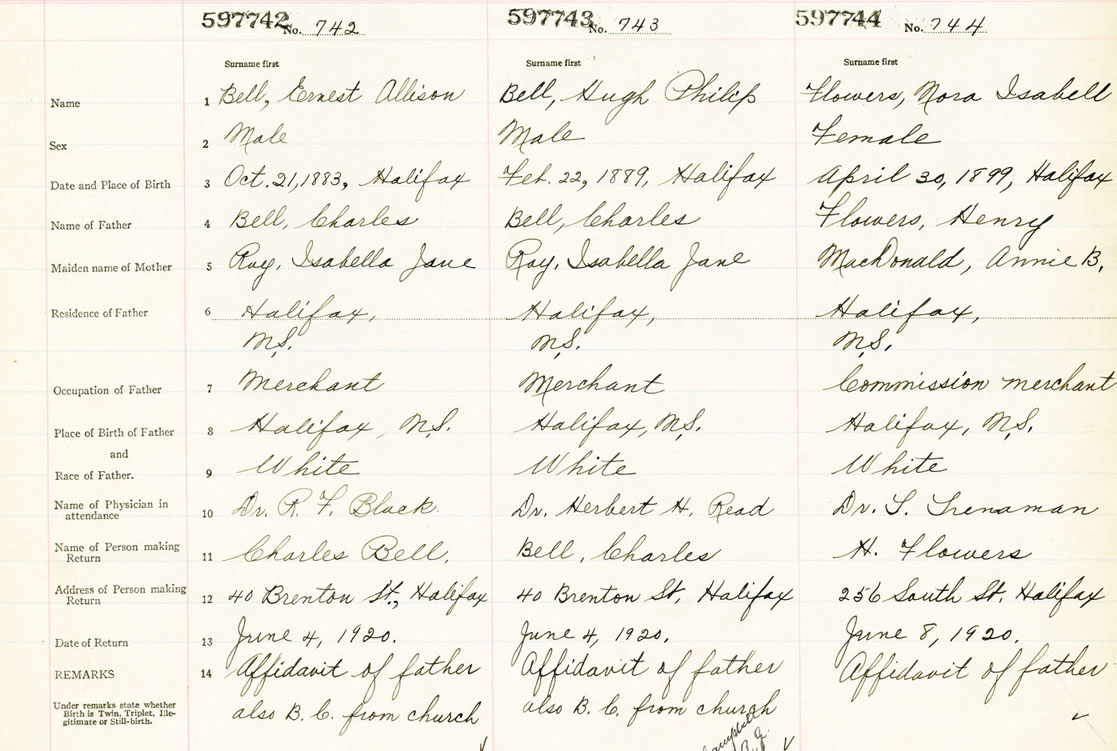 597742 No. 742 597743 No. 743 597744 No. 744
Surname first Surname first Surname first
Name 1 Bell, Ernest Allison Bell, Hugh Philip Flowers, Nora Isabell
Sex 2 Male Male Female
Date and Place of Birth 3 Oct. 21, 1883, Halifax Feb. 22, 1889, Halifax April 30, 1899, Halifax
Name of Father 4 Bell, Charles Bell, Charles Flowers, Henry
Maiden name of Mother 5 Ray, Isabella Jane Ray, Isabella Jane MacDonald, Annie B.
Residence of Father 6 Halifax, Halifax, Halifax,
N.S. N.S. N.S.
Occupation of Father 7 Merchant Merchant Commission merchant
Place of Birth of Father 8 Halifax, N.S. Halifax, N.S. Halifax, N.S.
and
Race of Father. 9 White White White
Name of Physician in
attendance 10 Dr. R. F. Black. Dr. Herbert H. Read Dr. T. Trenaman
Name of Person making
Return 11 Charles Bell. Bell, Charles H. Flowers
Address of Person making
Return 12 40 Brenton St., Halifax 40 Brenton St, Halifax 256 South St. Halifax
Date of Return 13 June 4, 1920. June 4, 1920. June 8, 1920.
REMARKS 14 Affidavit of father Affidavit of father Affidavit of father
Under remarks state whether
Birth is Twin, Triplet, Ille-
gitimate or Still-birth.
also B. C. from church also B. C. from church